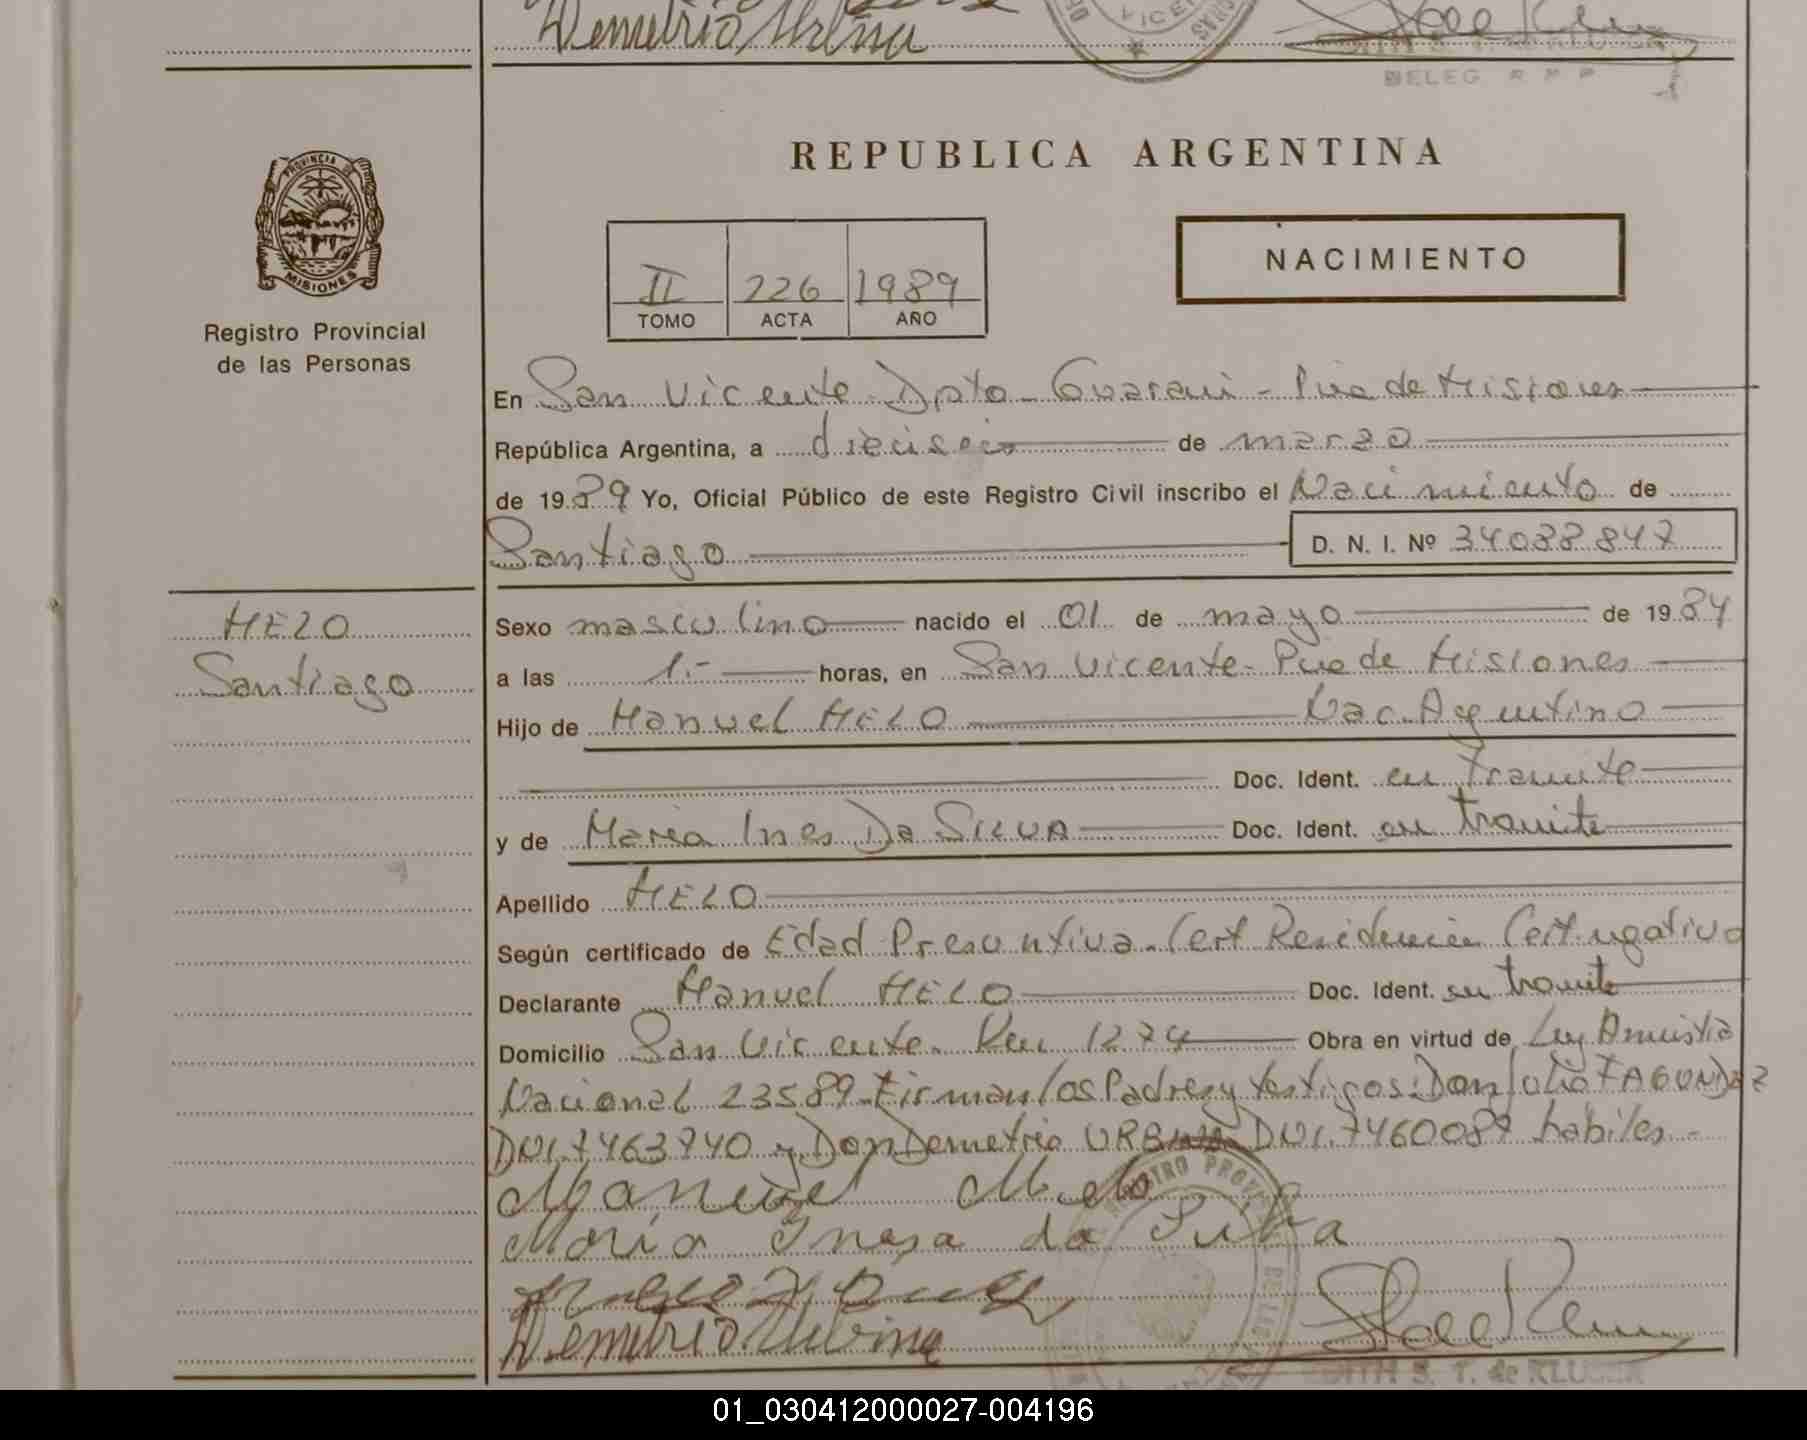 Demetrio Urbina
VICEN
DELEG R P P
PROVINCIA DE
MISIONES
Registro Provincial
de las Personas
REPUBLICA ARGENTINA
NACIMIENTO
II 226 1989
TOMO ACTA AÑO
En San Vicente Dpto Guarani - Pcia de Misiones
República Argentina, a dieciseis de marzo
de 1989 Yo, Oficial Público de este Registro Civil inscribo el Nacimiento de
Santiago D. N. I. Nº 34088847
MELO
Santiago
Sexo masculino nacido el 01 de mayo de 1984
a las 1.- horas, en San Vicente - Pcia de Misiones
Hijo de Manuel MELO Nac. Argentino
Doc. Ident. en tramite
y de Maria Ines Da SILVA Doc. Ident. en tramite
Apellido MELO
Según certificado de Edad Presuntiva - Cert Residencia Cert. negativo
Declarante Manuel MELO Doc. Ident. en tramite
Domicilio San Vicente - Km 1274 Obra en virtud de Ley Amnistia
Nacional 23589 - Firman los Padres y testigos: Don Julio FAGUNDEZ
DNI. 7463740 y Don Demetrio URBINA DNI. 7460089 habiles -
Manuel Melo
Maria Inesa da Silva
Demetrio Urbina
REGISTRO PROV
EDITH S. T. de KLUGER
01_030412000027-004196